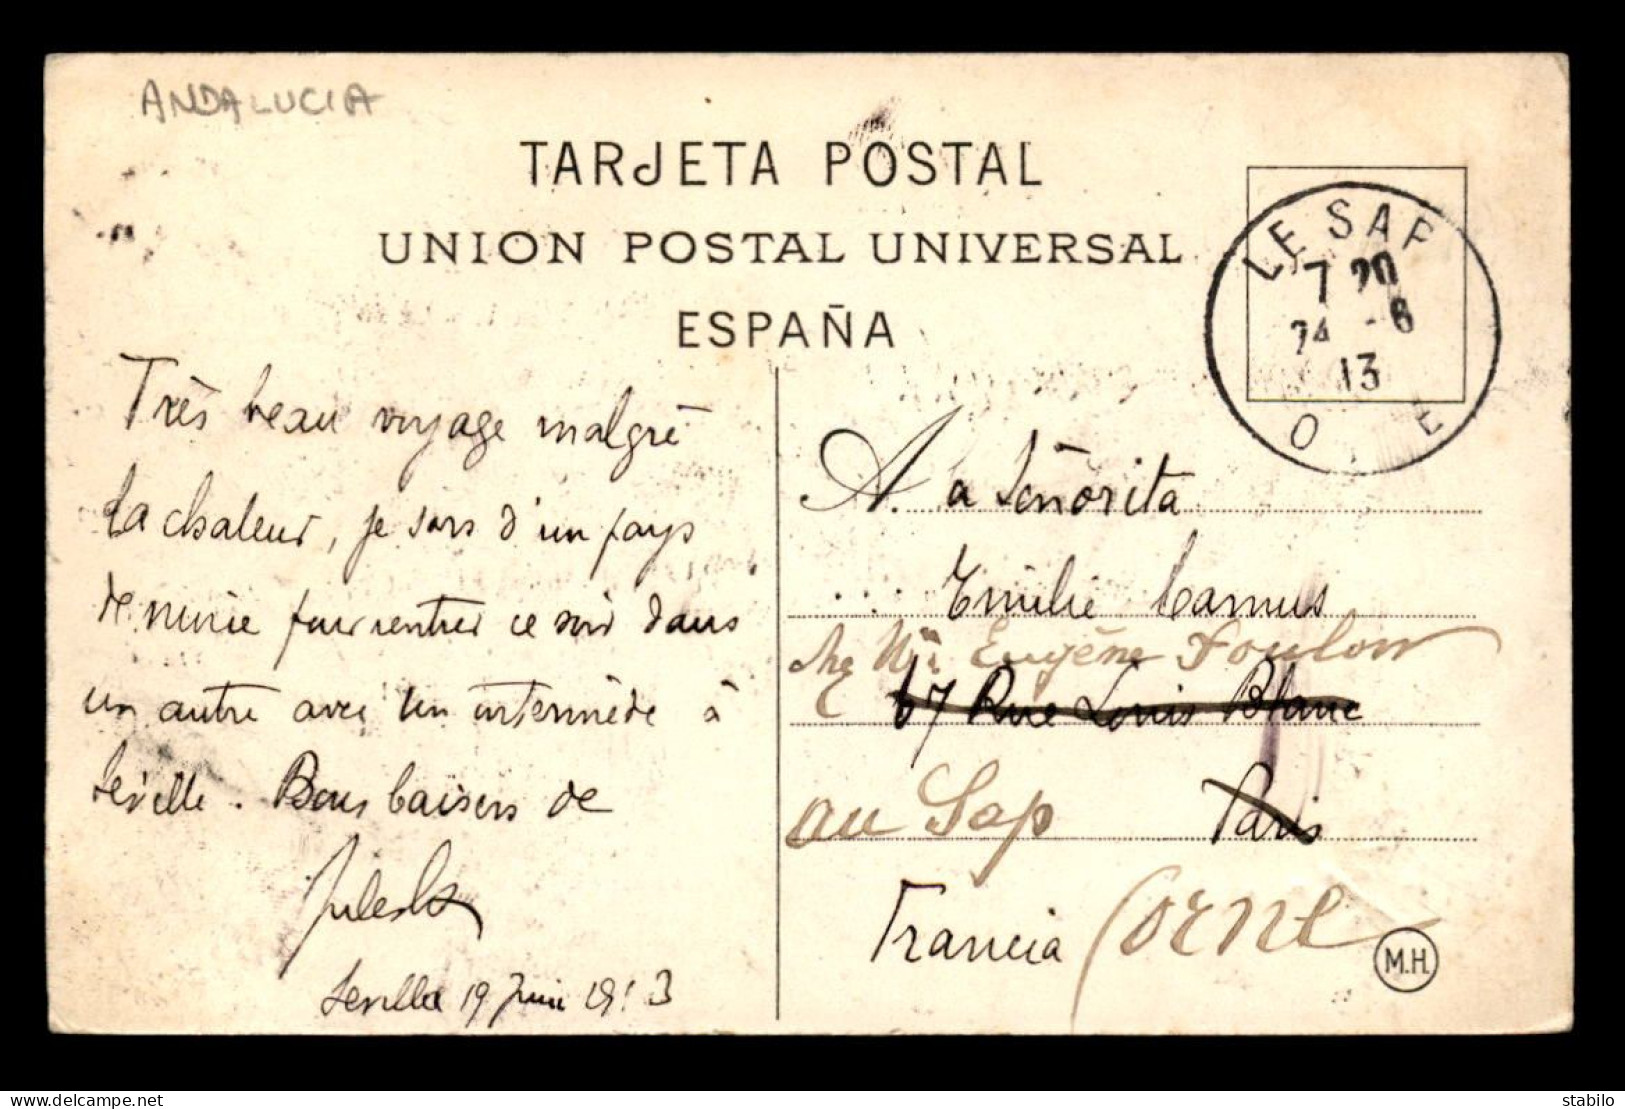 ANDALUCIA
TARJETA POSTAL
UNION POSTAL UNIVERSAL
ESPAÑA
LE SAP
7 20
24 -6
13
O E
Très beau voyage malgré
la chaleur, je sors d'un pays
de mine pour rentrer ce soir dans
un autre avec un intermède à
Séville. Bons baisers de
Jules
Sevilla 19 Juin 1913
A. a Señorita
Emilie Camus
Eugène Foulon
67 Rue Louis Blanc
au Sap Paris
Francia Orne
M.H.
delcampe.net
stabilo